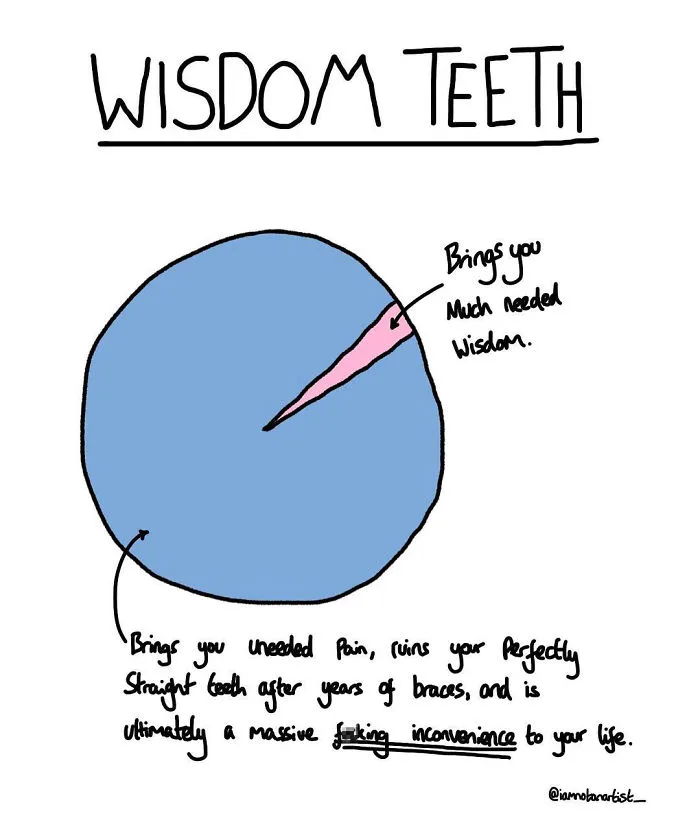 WISDOM TEETH
Brings you
Much needed
Wisdom.
Brings you uneeded Pain, ruins your Perfectly
Straight teeth after years of braces, and is
ultimately a massive f**king inconvenience to your life.
@iamnotanartist_